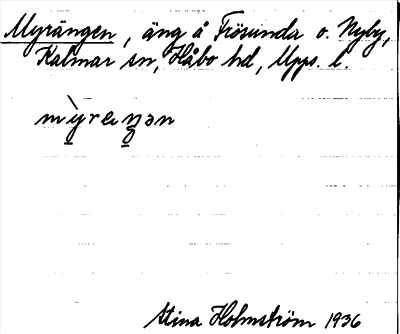 Myrängen, äng å Frösunda o. Nyby,
Kalmar sn, Håbo hd, Upps. l.
Stina Holmström 1936